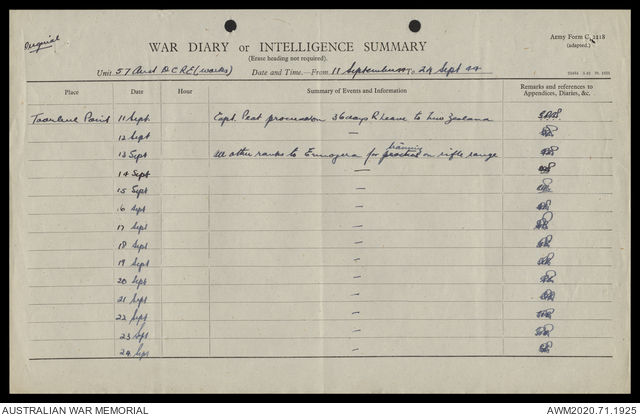 Original
Army Form C. 2118
(adapted.)
WAR DIARY or INTELLIGENCE SUMMARY
(Erase heading not required).
Unit 57 Aust D C R E (works) Date and Time.—From 11 September 44 To 24 Sept 44
Place Date Hour Summary of Events and Information Remarks and references to Appendices, Diaries, &c.
Toorbul Point 11 Sept. Capt. Peat proceeds on 36 days R leave to New Zealand
12 Sept —
13 Sept All other ranks to Enoggera for training practice on rifle range
14 Sept —
15 Sept —
16 Sept —
17 Sept —
18 Sept —
19 Sept —
20 Sept —
21 Sept —
22 Sept —
23 Sept —
24 Sept —
AUSTRALIAN WAR MEMORIAL AWM2020.71.1925